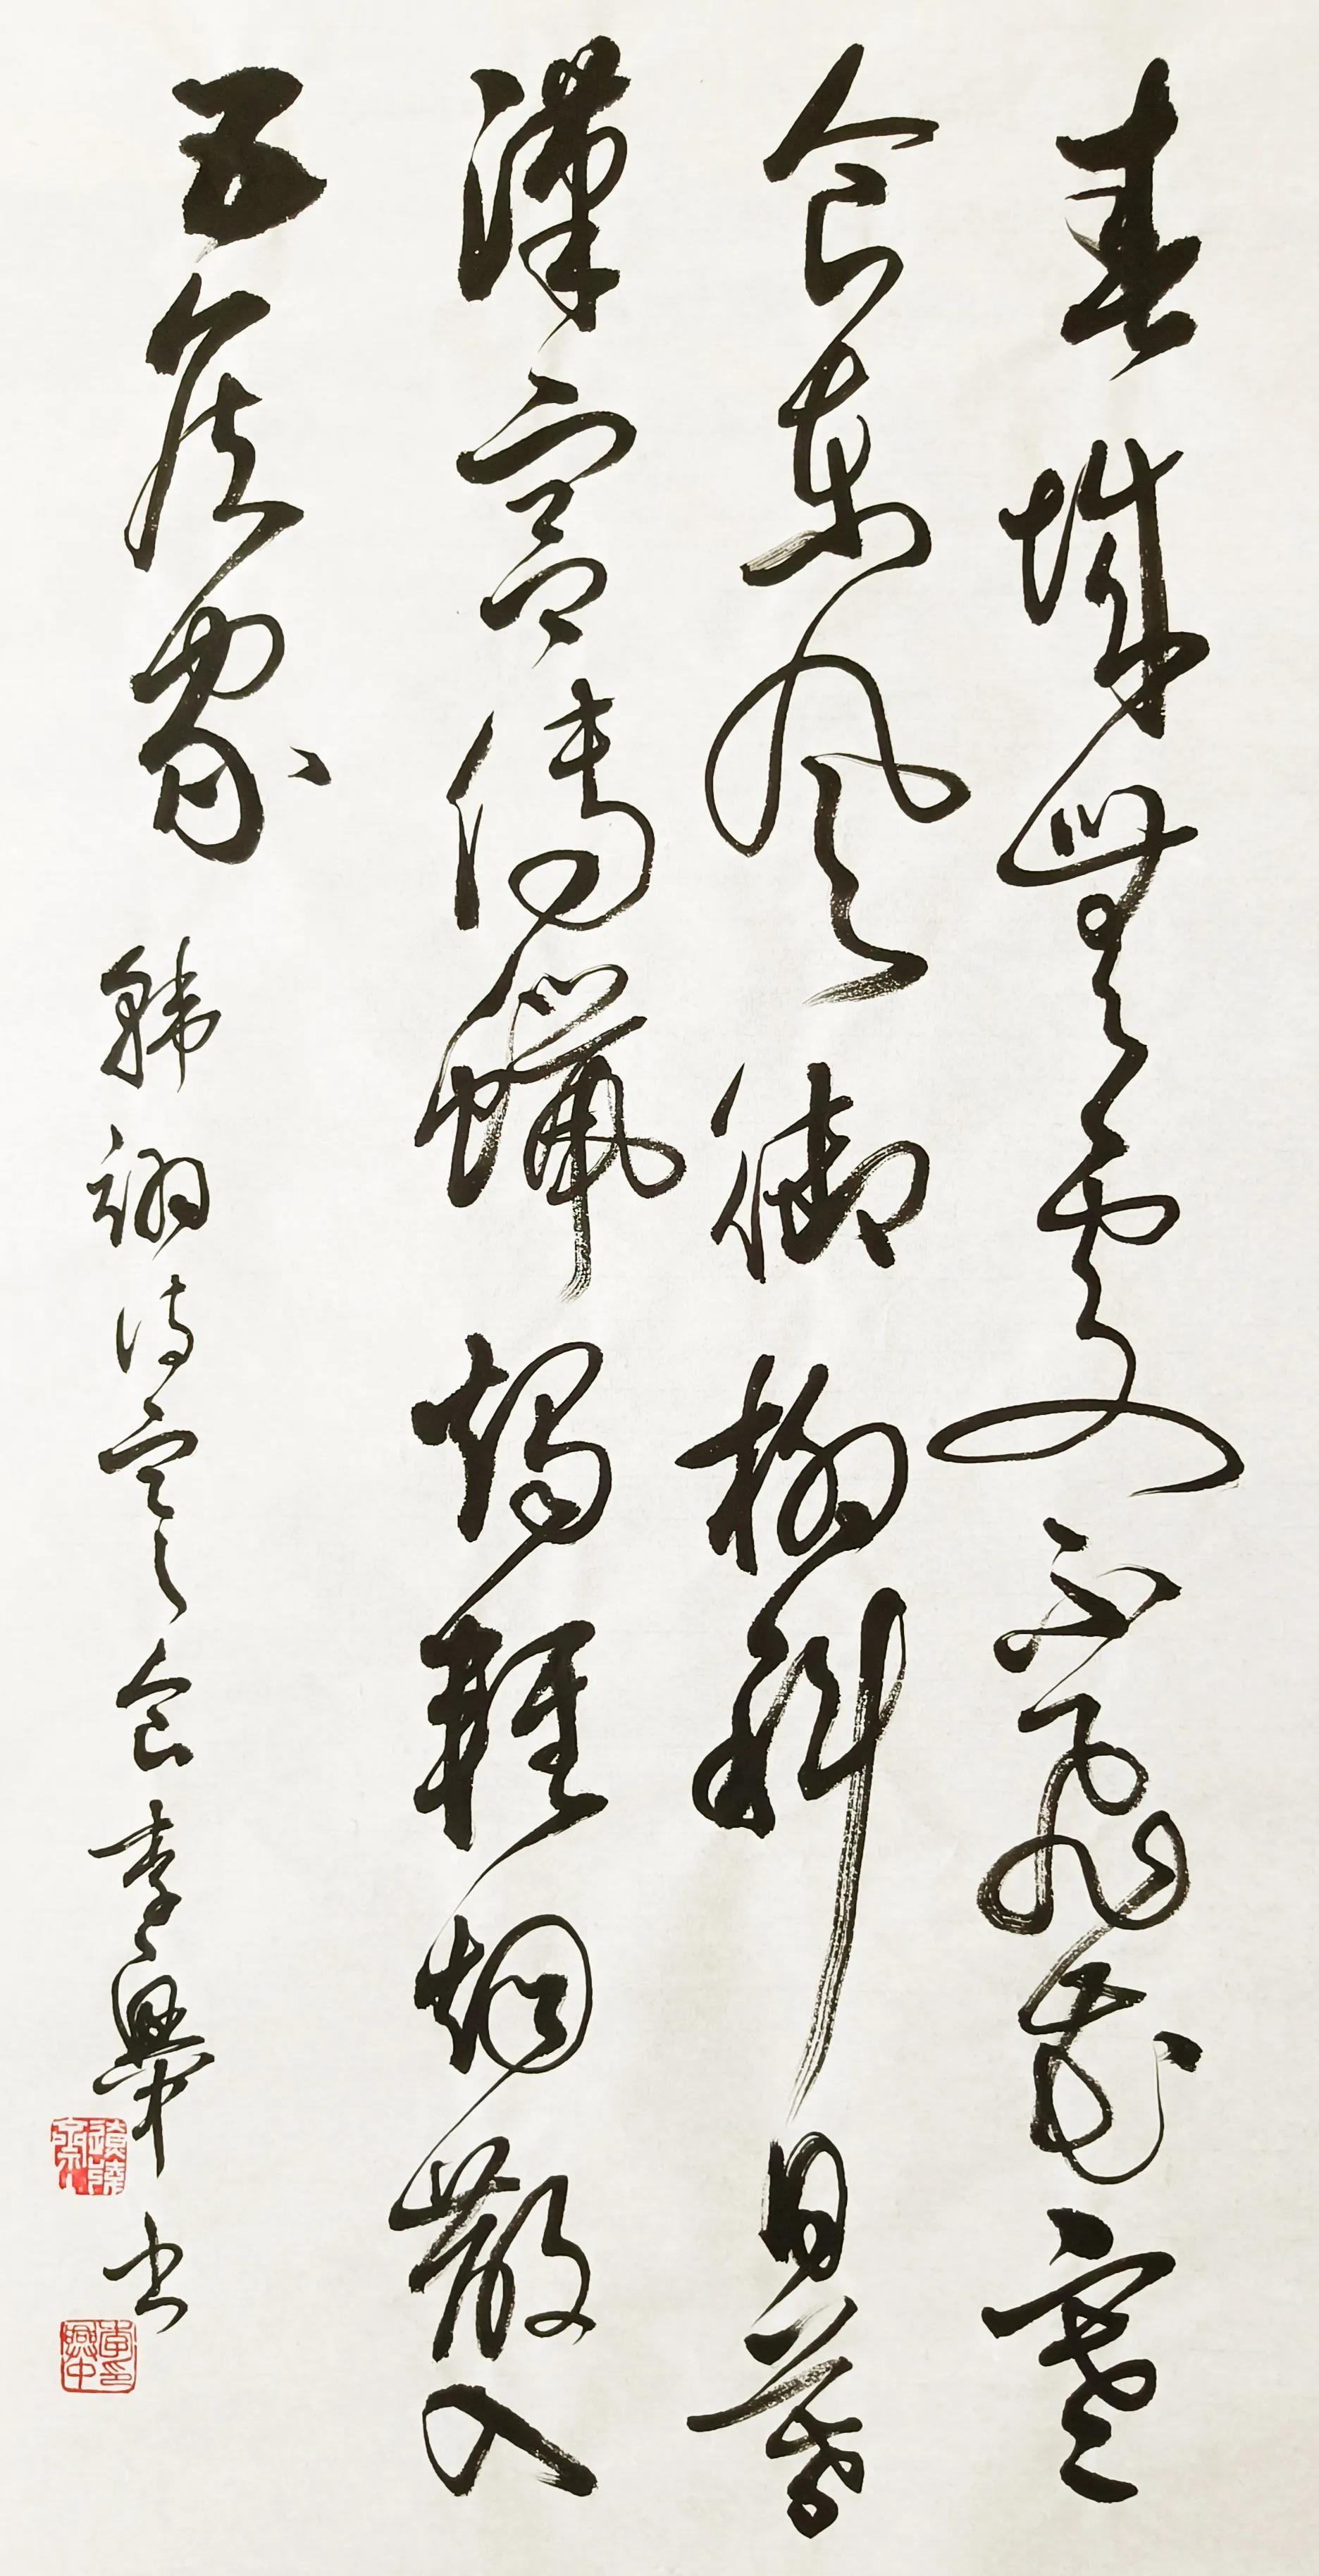 春城無處不飛花寒
食東風御柳斜日暮
漢宮傳蠟燭輕烟散入
五侯家
韓翃詩寒食李興中书
李興中印